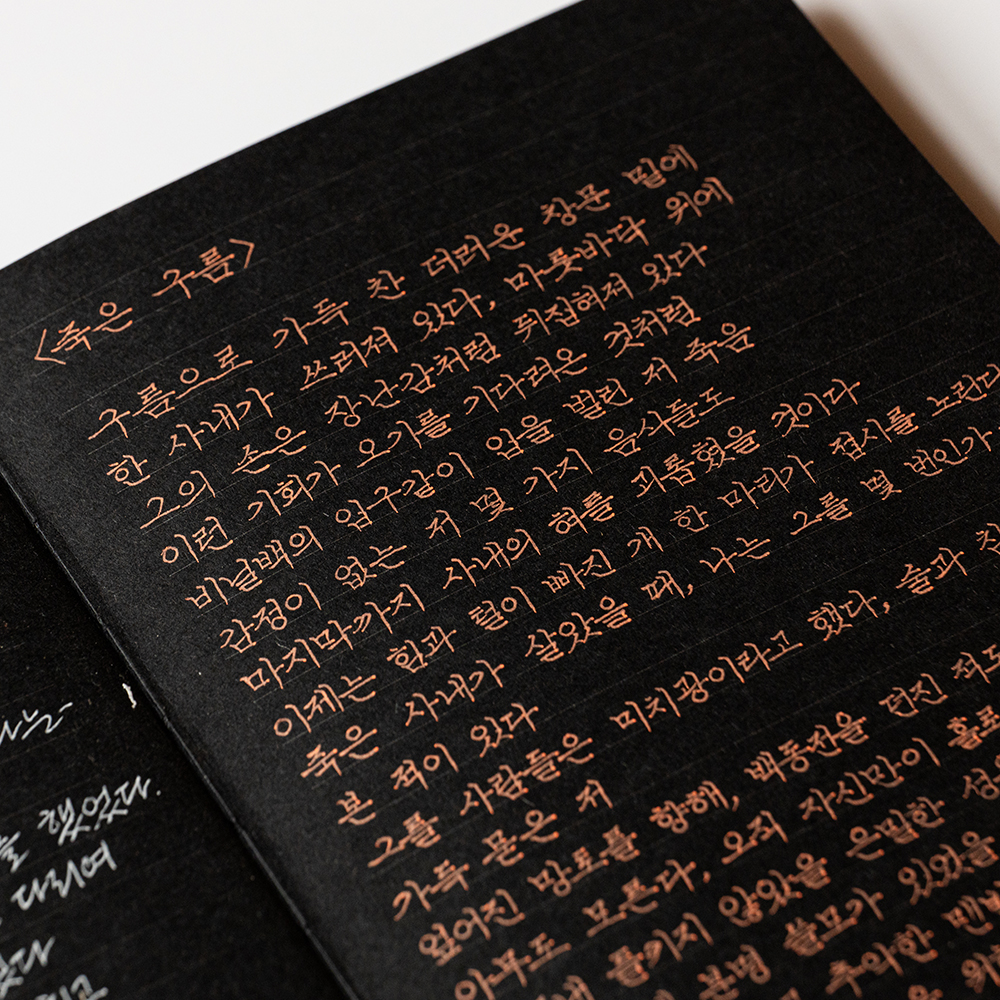 <죽은 구름>
구름으로 가득 찬 더러운 창문 밑에
한 사내가 쓰러져 있다, 마룻바닥 위에
그의 손은 장난감처럼 뒤집혀져 있다
이런 기회가 오기를 기다려온 것처럼
비닐백의 입구같이 입을 벌린 저 죽음
감정이 없는 저 몇 가지 음식들도
마지막까지 사내의 혀를 괴롭혔을 것이다
이제는 힘과 털이 빠진 개 한 마리가 접시를 노린다
죽은 사내가 살았을 때, 나는 그를 몇 번인가
본 적이 있다
그를 사람들은 미치광이라고 했다, 술과
가득 묻은 저
엎어진 망토를 향해, 백동전을 던진 적도
아무도 모른다, 오직 자신만이 홀로
즐기지 않았을 은밀한
분명 쓸모가 있었을
추악한
했었다.
다리여